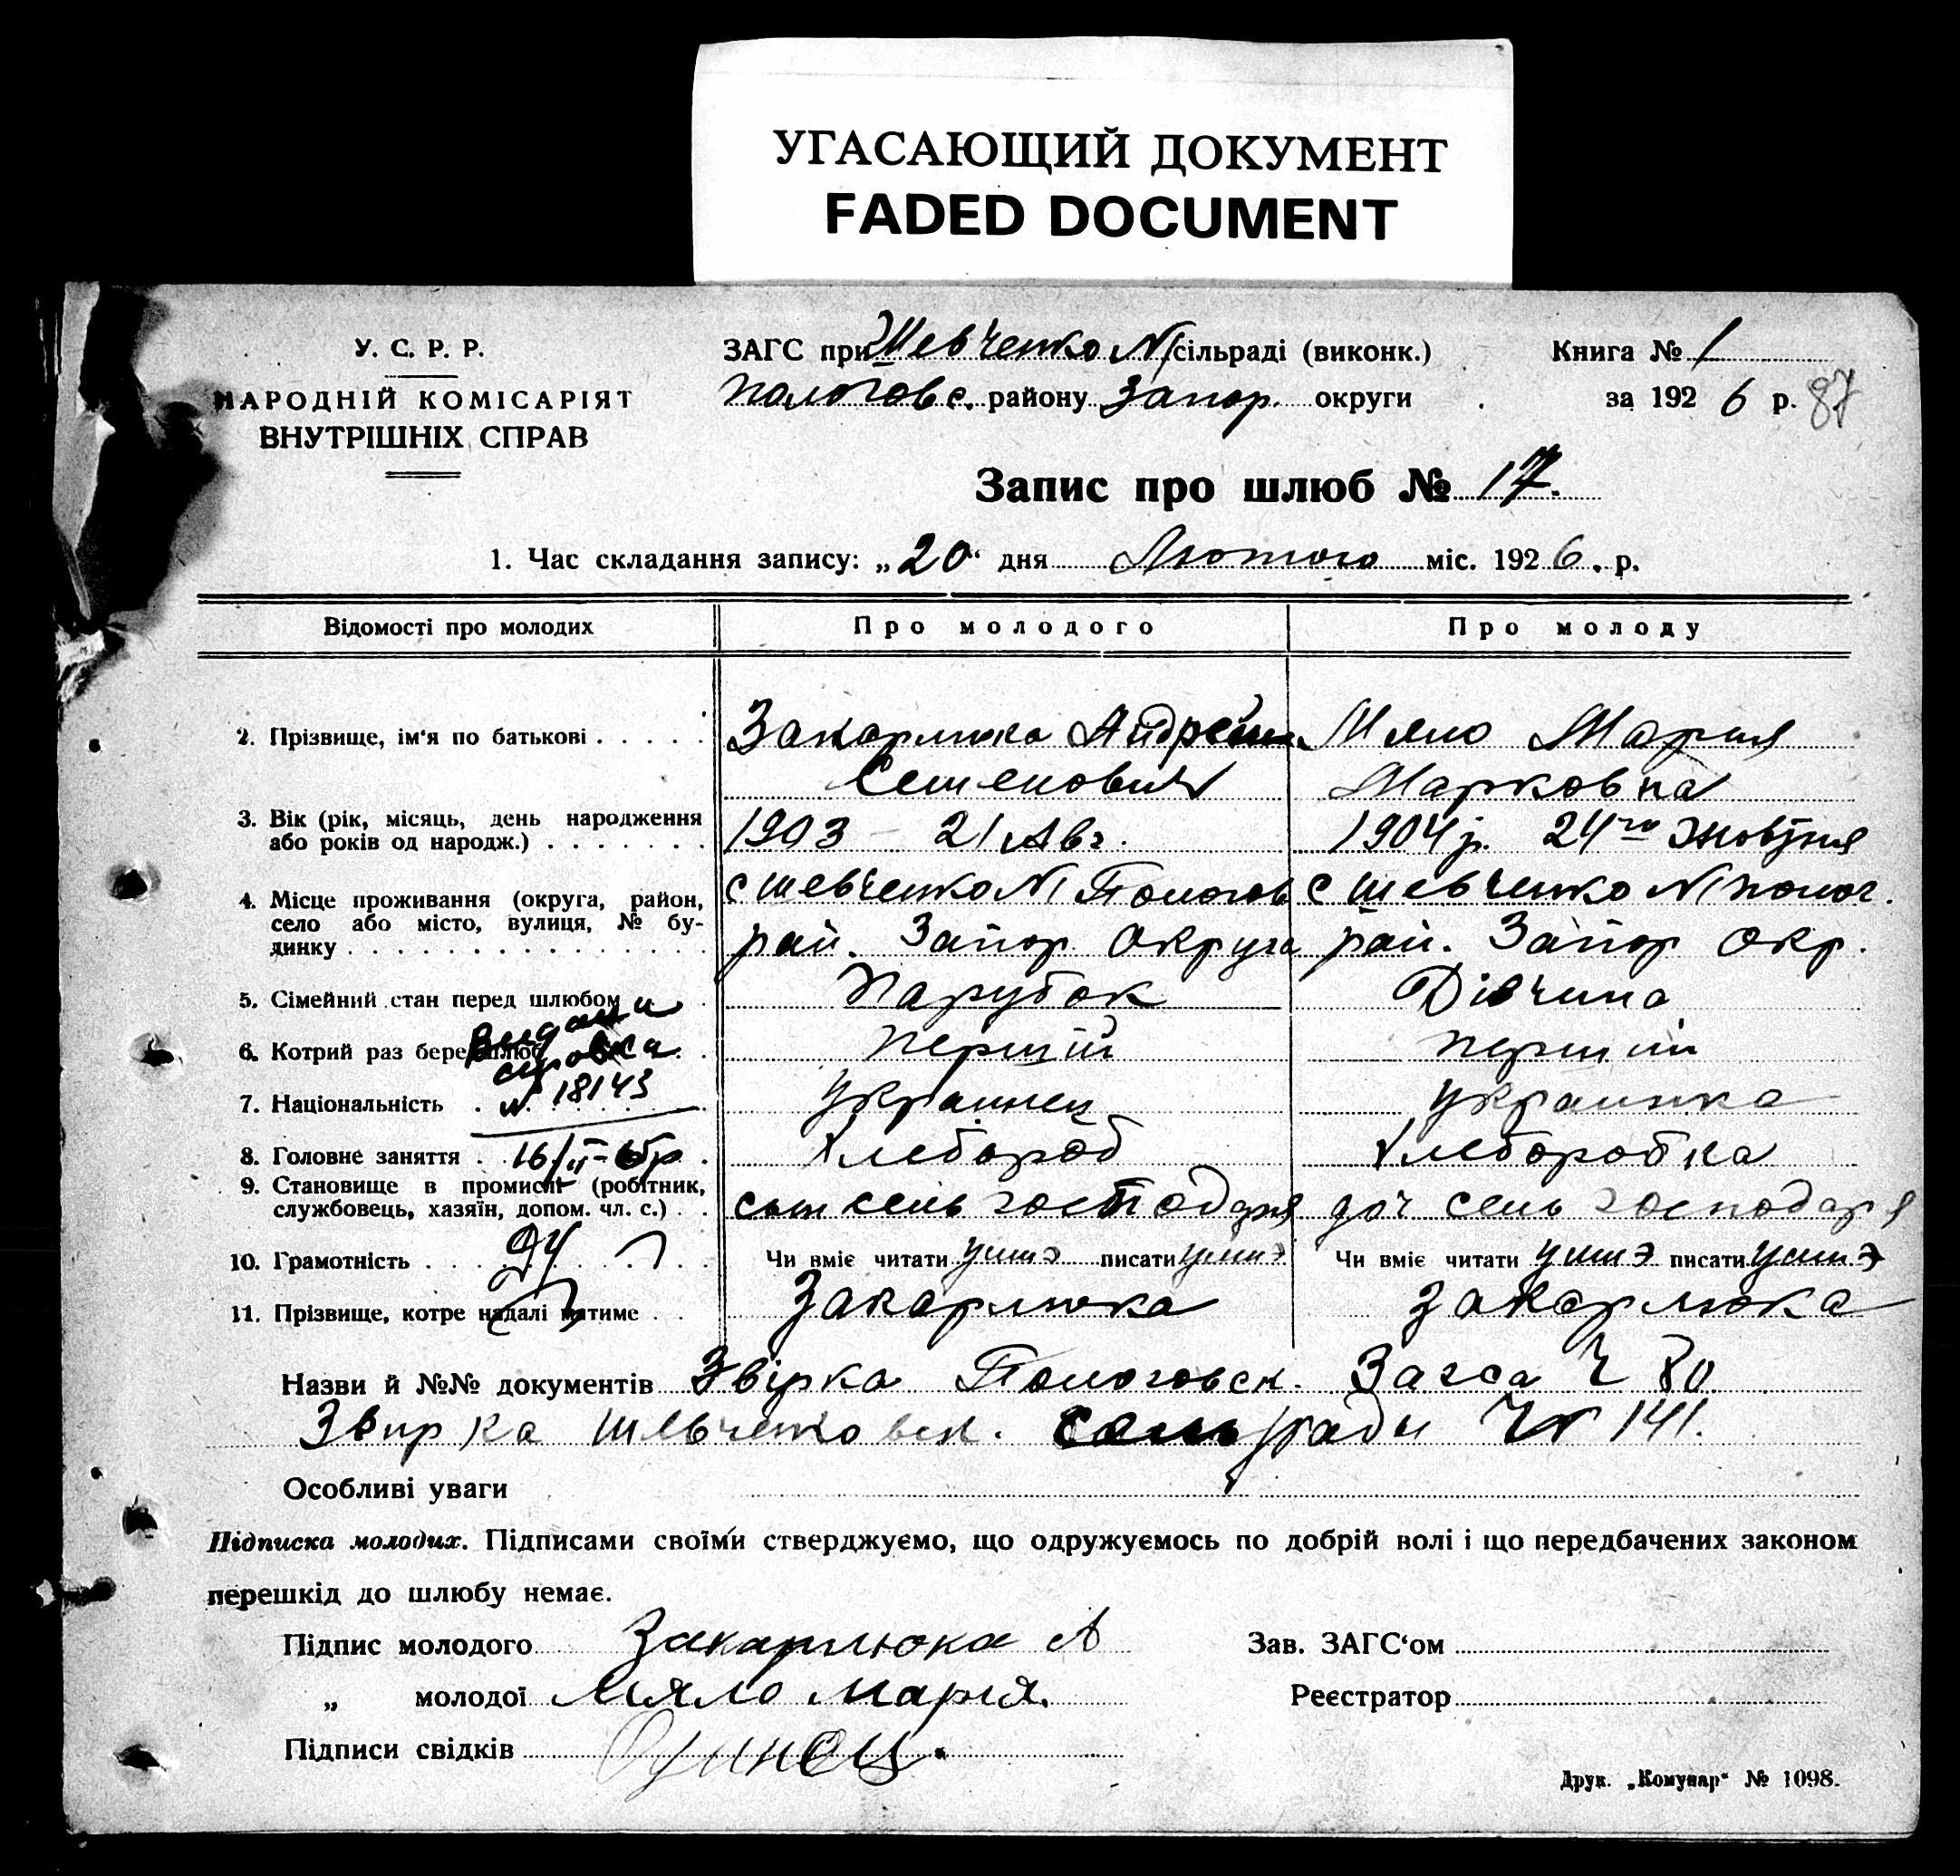 УГАСАЮЩИЙ ДОКУМЕНТ
FADED DOCUMENT
У. С. Р. Р.
НАРОДНІЙ КОМІСАРІЯТ
ВНУТРІШНІХ СПРАВ
ЗАГС при Шевченко №1 сільраді (виконк.)
Пологовс. району Запор. округи
Книга № 1
за 1926 р.
87
Запис про шлюб № 17.
1. Час складання запису: „20“ дня Лютого міс. 1926. р.
Відомості про молодих Про молодого Про молоду
2. Прізвище, ім'я по батькові Закарлюка Андрей Мяло Мария
Семенович Марковна
3. Вік (рік, місяць, день народження
або років од народж.) 1903 – 21 Авг. 1904 р. 24го Жовтня
4. Місце проживання (округа, район,
село або місто, вулиця, № бу-
динку
с Шевченко №1 Пологов с Шевченко №1 полог.
рай. Запор Округа рай. Запор Окр.
5. Сімейний стан перед шлюбом Парубок Дівчина
6. Котрий раз бере шлюб Перший перший
7. Національність Украинец украинка
8. Головне заняття Хлебороб Хлеборобка
9. Становище в промислі (робітник,
службовець, хазяїн, допом. чл. с.) сын сель господаря доч сель господаря
Выдана
справка
№ 18143
10. Грамотність Чи вміє читати уміэ писати уміэ Чи вміє читати уміэ писати уміэ
11. Прізвище, котре надалі матиме Закарлюка Закарлюка
Назви й №№ документів Звірка Пологовск. Загса Ч 80
Звирка Шевченковск. сельради Ч 141.
Особливі уваги
Підписка молодих. Підписами своїми стверджуємо, що одружуємось по добрій волі і що передбачених законом
перешкід до шлюбу немає.
Підпис молодого Закарлюка А
Зав. ЗАГС'ом
„ молодої Мяло Мария.
Реєстратор
Підписи свідків
Друк. „Комунар“ № 1098.